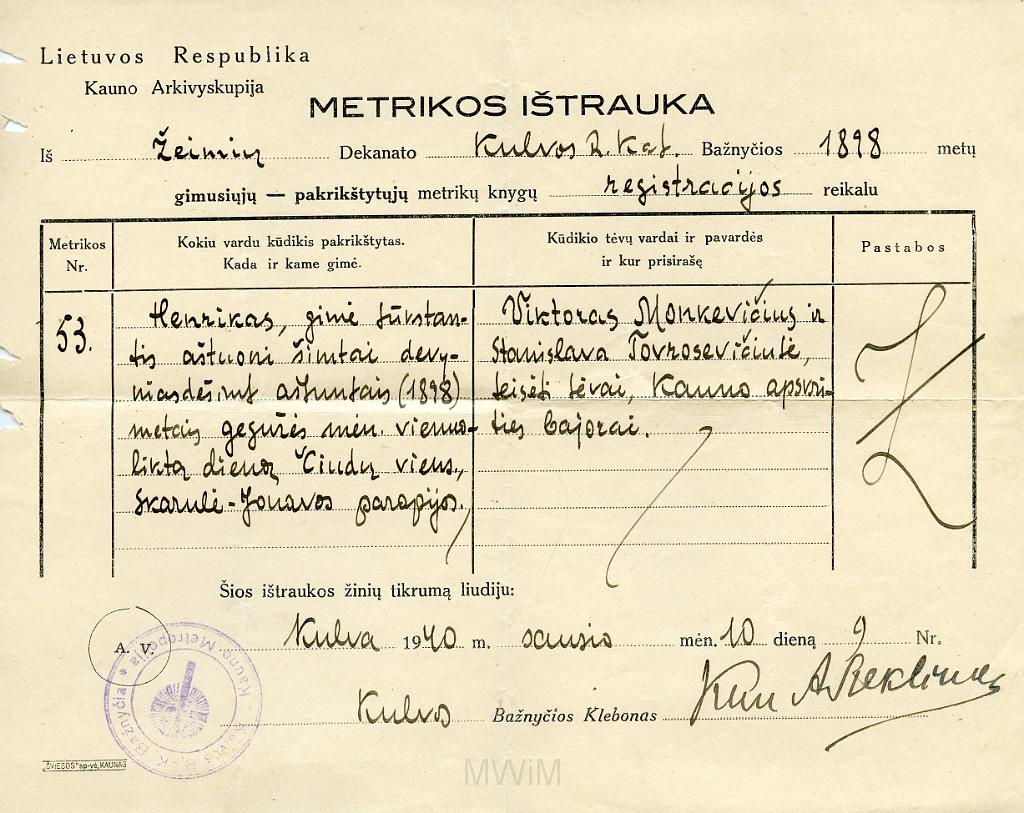 Lietuvos Respublika
Kauno Arkivyskupija
METRIKOS IŠTRAUKA
Iš Žeimių Dekanato Kulvos R. Kat. Bažnyčios 1898 metų
gimusiųjų — pakrikštytųjų metrikų knygų registracijos reikalu
Metrikos Nr.
Kokiu vardu kūdikis pakrikštytas.
Kada ir kame gimė.
Kūdikio tėvų vardai ir pavardės
ir kur prisirašę
Pastabos
53.
Henrikas, gimė tūkstan-
tis aštuoni šimtai devy-
niasdešimt aštuntais (1898)
metais gegužės mėn. vienuo-
liktą dieną Čiudų viens.,
Skarulė-Jonavos parapijos.
Viktoras Monkevičius ir
Stanislava Tovrosevičiutė,
teisėti tėvai, Kauno apskri-
ties bajorai.
Šios ištraukos žinių tikrumą liudiju:
A. V.
Kulva 1940 m. sausio mėn. 10 dieną 9 Nr.
Kulvos Bažnyčios Klebonas Kun A.
Kulvos R.-K. Bažnyčia * Kauno Metropolija
„ŠVIESOS" sp-vė, KAUNAS
MWiM